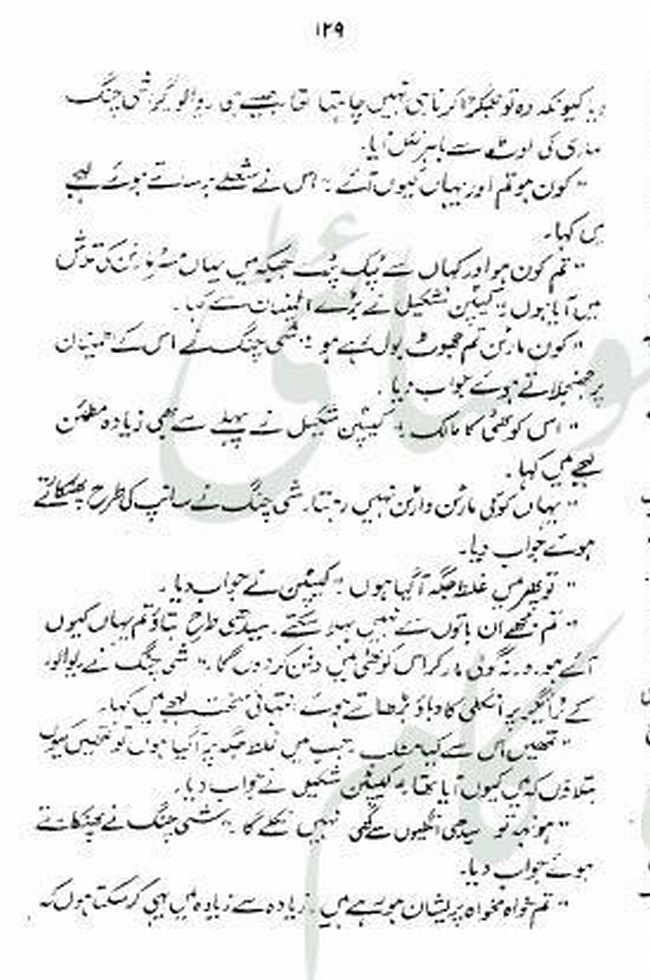 ۱۲۹
دیا کیونکہ وہ تو جھگڑا کرنا ہی نہیں چاہتا تھا جیسے ہی ریوالور شمی چنگ
ماری کی اوٹ سے باہر نکل آیا۔
" کون ہو تم اور یہاں کیوں آئے ہو اس نے شعلے برساتے ہوئے لہجے
میں کہا۔
" تم کون ہو اور کہاں سے ٹپک پڑے جبکہ میں یہاں مسٹر مارٹن کی تلاش
میں آیا ہوں " کیپٹن شکیل نے بڑے اطمینان سے کہا۔
" کون مارٹن تم جھوٹ بول رہے ہو " شمی چنگ نے اس کے اطمینان
پر جھنجلاتے ہوئے جواب دیا۔
" اس کوٹھی کا مالک " کیپٹن شکیل نے پہلے سے بھی زیادہ مطمئن
لہجے میں کہا۔
" یہاں کوئی مارٹن وارٹن نہیں رہتا۔ شمی چنگ نے سانپ کی طرح پھنکارتے
ہوئے جواب دیا۔
" تو پھر میں غلط جگہ آ گیا ہوں " کیپٹن نے جواب دیا۔
" تم مجھے ان باتوں سے نہیں بہلا سکتے۔ سیدھی طرح بتاؤ تم یہاں کیوں
آئے ہو۔ ورنہ گولی مار کر اس کوٹھی میں دفن کر دوں گا " شمی چنگ نے ریوالور
کے ٹرائیگر پر انگلی کا دباؤ بڑھاتے ہوئے انتہائی سخت لہجے میں کہا۔
" تمہیں اس سے کیا مطلب جب میں غلط جگہ پر آ گیا ہوں تو تمہیں کیوں
بتلاؤں کہ میں کیوں آیا تھا " کیپٹن شکیل نے جواب دیا۔
" ہونہہ تو سیدھی انگلیوں سے گھی نہیں نکلے گا " شمی چنگ نے پھنکارتے
ہوئے جواب دیا۔
" تم خواہ مخواہ پریشان ہو رہے ہیں۔ زیادہ سے زیادہ میں یہی کر سکتا ہوں کہ